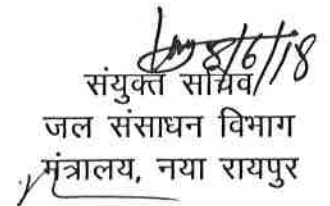 8/6/18
संयुक्त सचिव
जल संसाधन विभाग
मंत्रालय, नया रायपुर